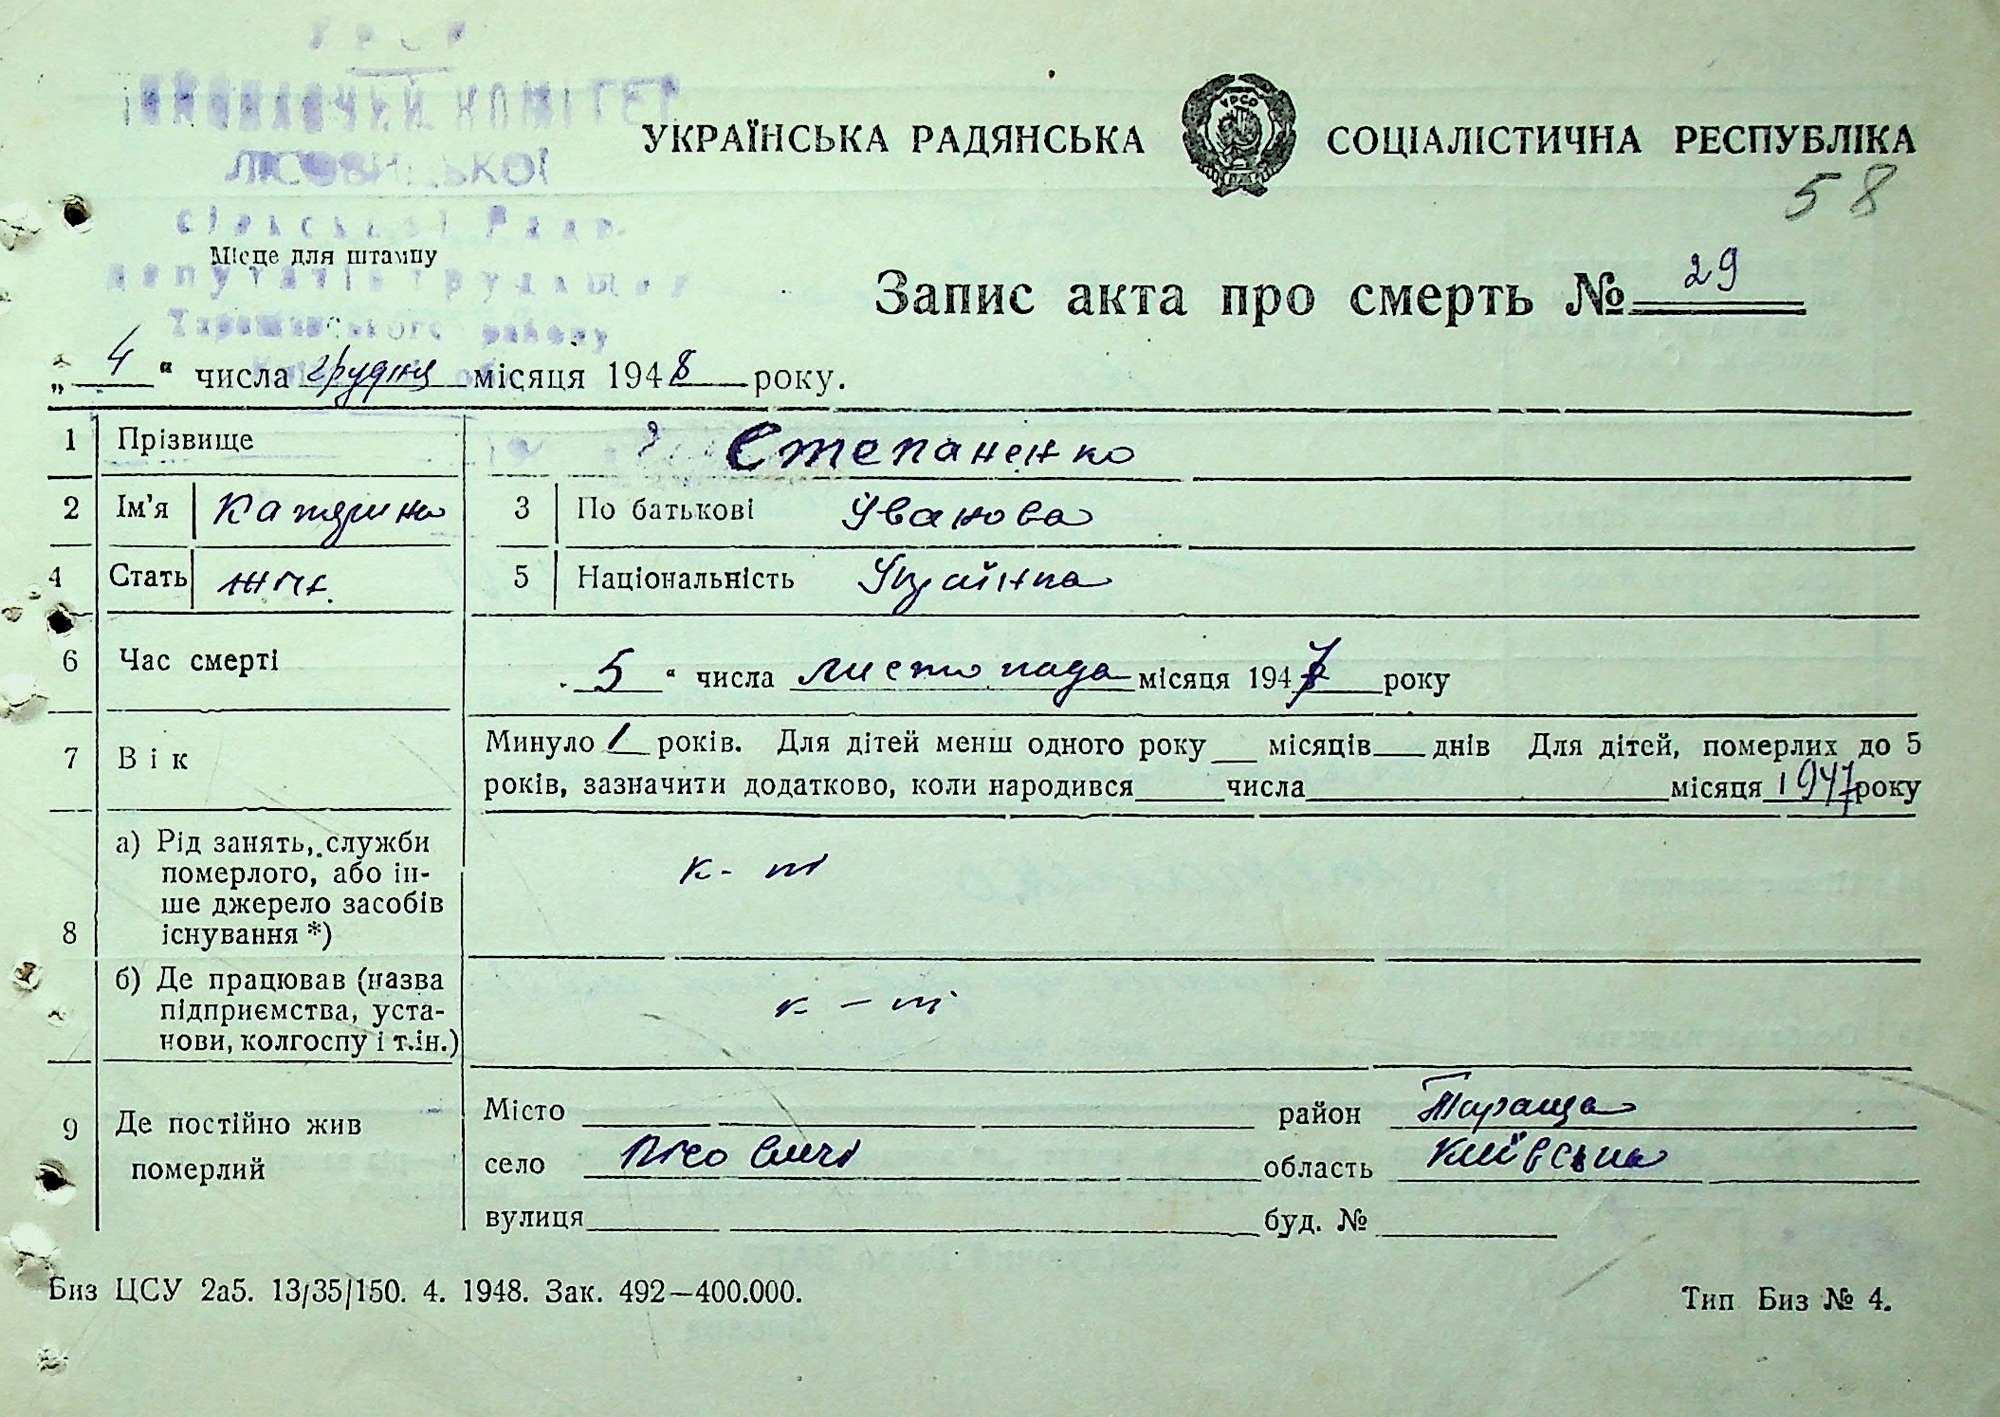 УРСР
ВИКОНАВЧИЙ КОМІТЕТ
ЛІСОВИЦЬКОЇ
сільської Ради
депутатів трудящих
Таращанського району
УКРАЇНСЬКА РАДЯНСЬКА УРСР СОЦІАЛІСТИЧНА РЕСПУБЛІКА
58
Місце для штампу
Запис акта про смерть № 29
„ 4 “ числа грудня місяця 1948 року.
1 Прізвище Степаненко
2 Ім'я Катерина 3 По батькові Іванова
4 Стать жін. 5 Національність Українка
6 Час смерті 5 “ числа листопада місяця 1947 року
7 Вік Минуло 1 років. Для дітей менш одного року місяців днів Для дітей, померлих до 5
років, зазначити додатково, коли народився числа місяця 1947 року
8 а) Рід занять, служби
померлого, або ін-
ше джерело засобів
існування *)
к- т
б) Де працював (назва
підприємства, уста-
нови, колгоспу і т.ін.)
к - т
9 Де постійно жив
померлий
Місто район Тараща
село Лісовичі область Київська
вулиця буд. №
Биз ЦСУ 2а5. 13/35/150. 4. 1948. Зак. 492—400.000.
Тип Биз № 4.